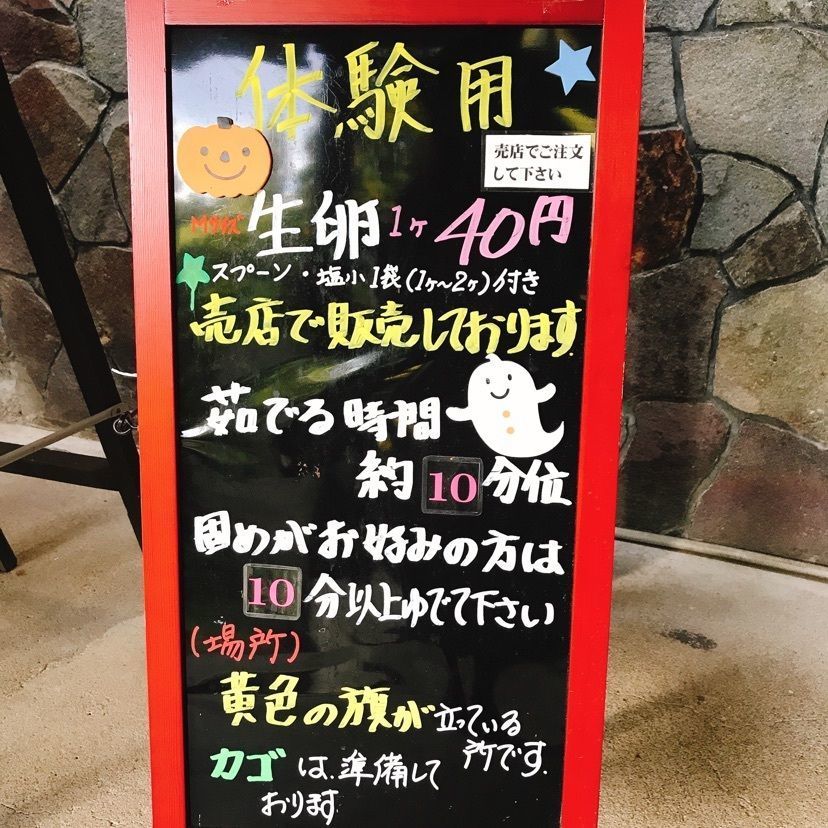 体験用
売店でご注文
して下さい
Mサイズ 生卵 1ヶ 40円
スプーン・塩小1袋(1ヶ〜2ヶ)付き
売店で販売しております
茹でる時間
約 10 分位
固めがお好みの方は
10 分以上ゆでて下さい
(場所)
黄色の旗が立っている
所です。
カゴは、準備して
おります